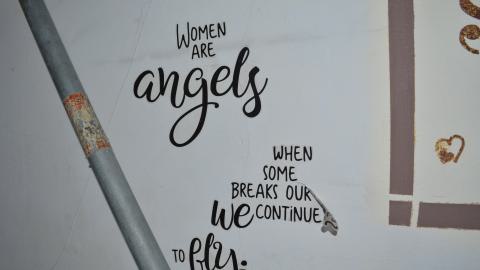 WOMEN
ARE
angels
WHEN
SOME
BREAKS OUR
we CONTINUE
TO fly.